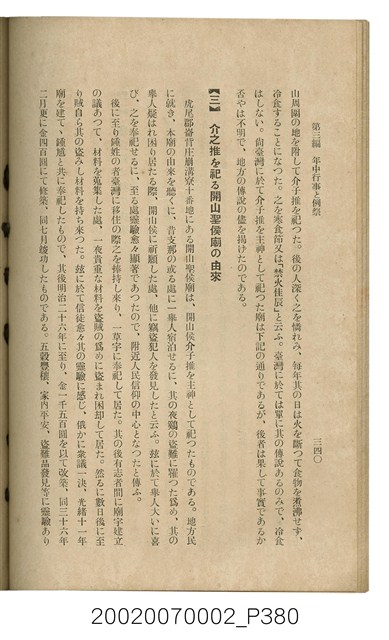 第三編　年中行事と例祭
三四〇
山周圍の地を賜して介子推を祀つた。後の人深く之を憐れみ、毎年其の日は火を斷つて食物を煮沸せず、
冷食することになつた。之を寒食節又は「禁火佳辰」と云ふ。臺灣に於ては單に其の傳說あるのみで、冷食
はしない。尙臺灣に於て介子推を主神として祀つた廟は下記の通りであるが、後者は果して事實であるか
否やは不明で、地方の傳說の儘を揭げたのである。
【三】　介之推を祀る開山聖侯廟の由來
虎尾郡崙背庄崩溝寮十番地にある開山聖侯廟は、開山侯介子推を主神として祀つたものである。地方民
に就き、本廟の由來を聽くに、昔支那の或る處に一擧人宿泊せるに、其の夜鷄の盜難に罹つた爲め、其の
擧人疑はれ困り居たる際、開山侯に祈願した處、他に竊盜犯人を發見したと云ふ。玆に於て擧人大いに喜
び、之を奉祀せるに、至る處靈驗愈々顯著であつたので、附近人民信仰の中心となつたと傳ふ。
後に至り鍾姓の者臺灣に移住の際之を捧持し來り、一草宇に奉祀して居た。其の後有志者間に廟宇建立
の議あつて、材料を蒐集した處、一夜貴重な材料を盜賊の爲めに盜まれ困却して居た。然るに數日後に至
り賊自ら其の盜みし材料を持ち來つた。玆に於て信徒愈々其の靈驗に感じ、俄かに衆議一決、光緖十一年
廟を建て、鍾馗と共に奉祀したもので、其後明治二十六年に至り、金一千五百圓を以て改築、同三十六年
二月更に金四百圓にて修築、同七月竣功したものである。五穀豐穰、家內平安、盜難品發見等に靈驗あり
20020070002_P380